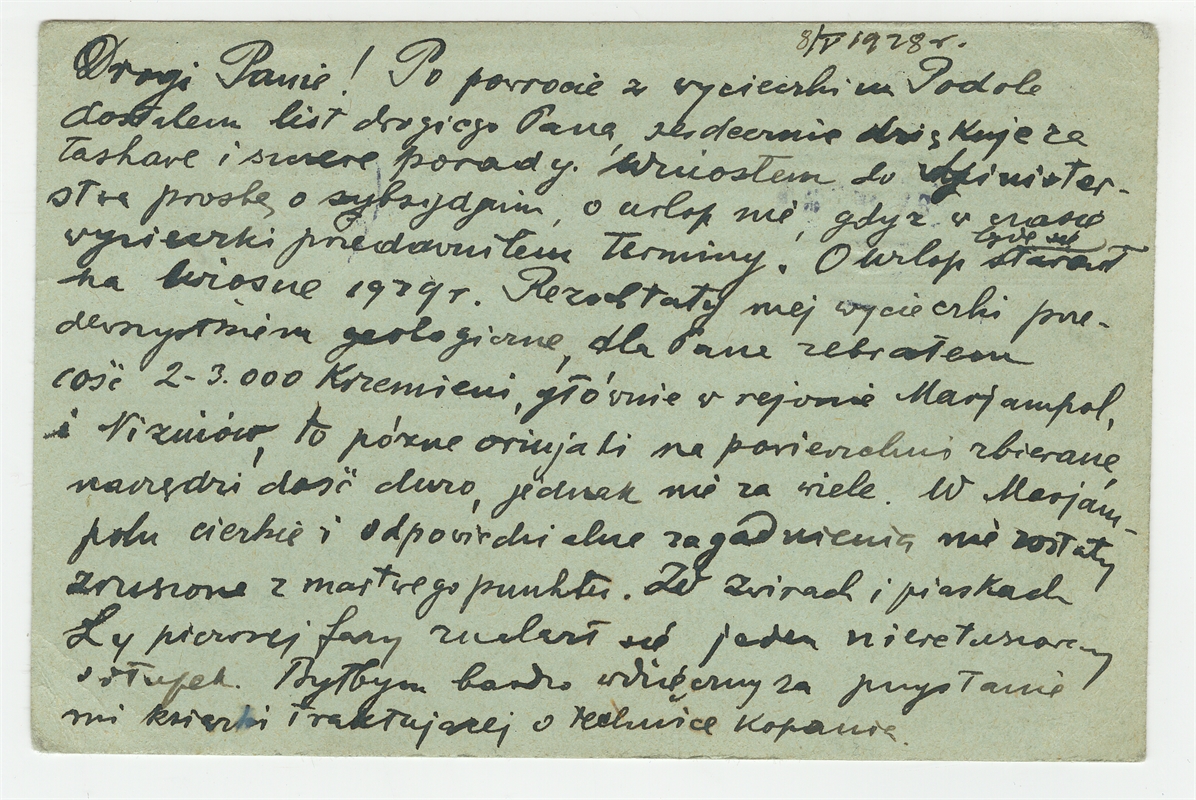 8/V 1928 r.
Drogi Panie! Po powrocie z wycieczki na Podole
dostałem list drogiego Pana, serdecznie dziękuję za
łaskawe i szczere porady. Wniosłem do Minister-
stwa prośbę o subsydjum, o urlop nie, gdyż w czasie
wycieczki przedawniłem terminy. O urlop będę się starał
na wiosnę 1929 r. Rezultaty mej wycieczki prze-
dewszystkiem geologiczne, dla Pana zebrałem
coś 2-3.000 krzemieni, głównie w rejonie Marjampol,
i Niżniów, to późne oriniaki na powierzchni zbierane,
narzędzi dość dużo, jednak nie za wiele. W Marjam-
polu ciężkie i odpowiedzialne zagadnienia nie zostały
zruszone z martwego punktu. W żwirach i piaskach
L4 pierwszej fazy znalazł się jeden nieretuszowany
odłupek. Byłbym bardzo wdzięczny za przysłanie
mi książki traktującej o technice kopania.